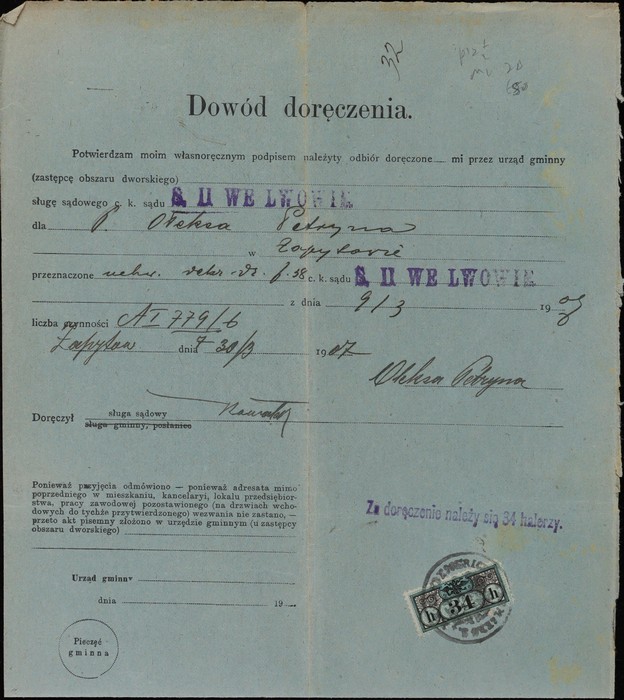 32
Dowód doręczenia.
Potwierdzam moim własnoręcznym podpisem należyty odbiór doręczone mi przez urząd gminny
(zastępcę obszaru dworskiego)
sługę sądowego c. k. sądu S. II WE LWOWIE
dla P. Ołeksa Petryna
w Zapytowie
przeznaczone c. k. sądu S. II WE LWOWIE
z dnia 9/3 19
liczba czynności A I 779/6
Zapytów dnia 30/3 1907
Oleksa Petryna
Doręczył sługa sądowy
sługa gminny, posłaniec
Ponieważ przyjęcia odmówiono — ponieważ adresata mimo
poprzedniego w mieszkaniu, kancelaryi, lokalu przedsiębior-
stwa, pracy zawodowej pozostawionego (na drzwiach wcho-
dowych do tychże przytwierdzonego) wezwania nie zastano, —
przeto akt pisemny złożono w urzędzie gminnym (u zastępcy
obszaru dworskiego)
Za doręczenie należy się 34 halerzy.
Urząd gminny
dnia 19
h 34 h
Pieczęć
gminna